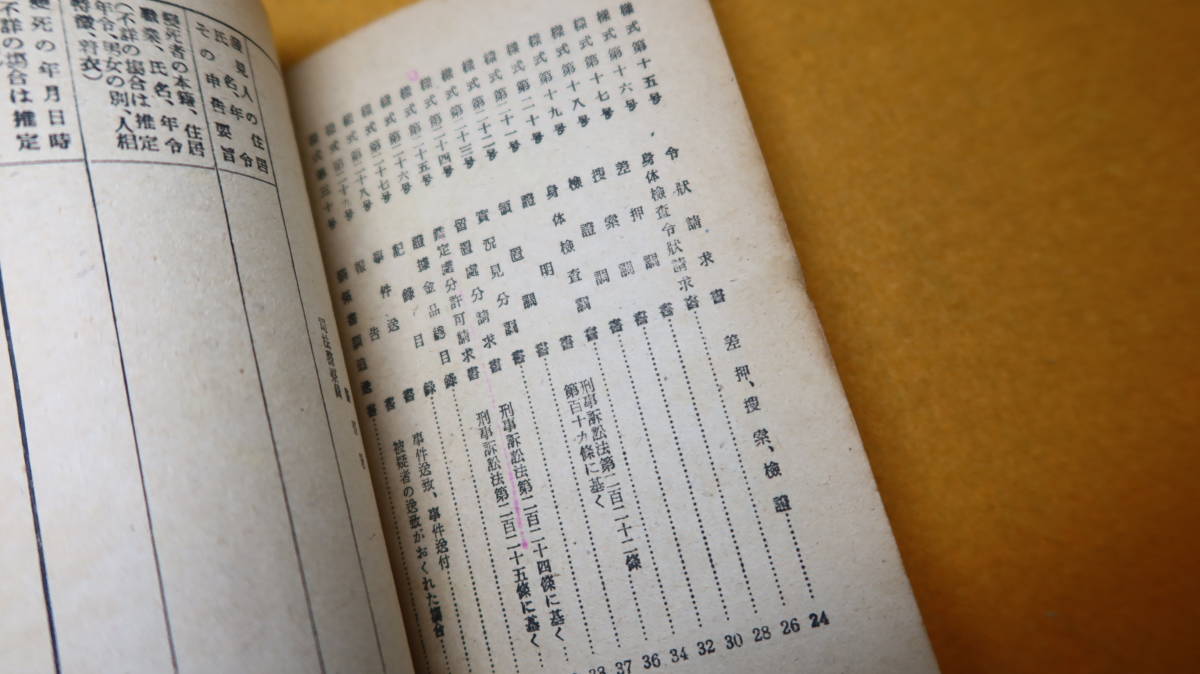 樣式第十五號 令狀請求書 差押、搜索、檢證 24
樣式第十六號 身体檢査令狀請求書 26
樣式第十七號 差押調書 28
樣式第十八號 搜索調書 30
樣式第十九號 檢證調書 32
樣式第二十號 身体檢査調書 刑事訴訟法第二百二十二條 第百十九條に基く 34
樣式第二十一號 證明書 36
樣式第二十二號 領置調書 37
樣式第二十三號 實況見分調書
樣式第二十四號 留置處分請求書 刑事訴訟法第二百二十四條に基く
樣式第二十五號 鑑定處分許可請求書 刑事訴訟法第二百二十五條に基く
樣式第二十六號 證據金品總目錄
樣式第二十七號 記錄目錄
樣式第二十八號 事件送致書 事件送致、事件送付
樣式第二十九號 報告書 被疑者の送致がおくれた場合
樣式第三十號
發見人の住居
氏名、年令
その申告要旨
變死者の本籍、住居
職業、氏名、年令
（不詳の場合は推定
年令、男女の別、人相
特徵、着衣）
變死の年月日時
不詳の場合は推定